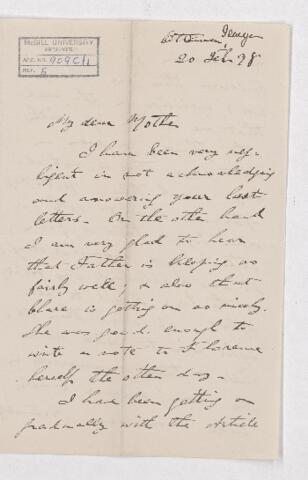 McGILL UNIVERSITY
ARCHIVES
ACC. NO. 909C/1
REF. 5
20 Feb 98
My dear Mother
I have been very neg-
ligent in not acknowledging
and answering your last
letters. On the other hand
I am very glad to hear
that Father is keeping so
fairly well; & also that
Clare is getting on so nicely.
She was good enough to
write a note to Florence
herself the other day.
I have been getting on
gradually with the Article